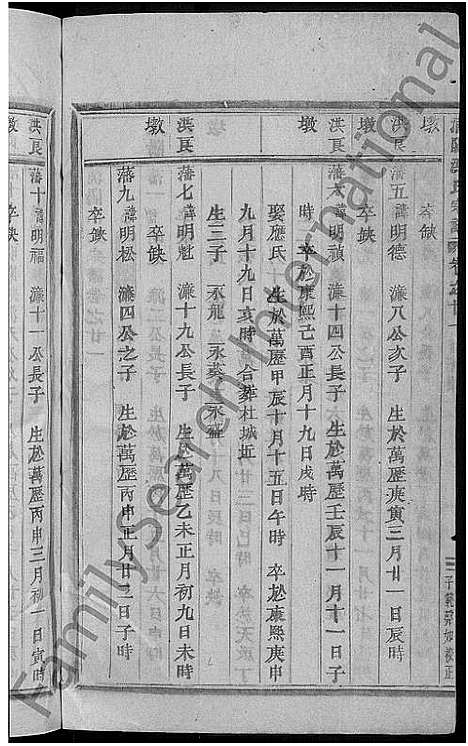 洪良 藩五 諱明德 濂八公次子 生於萬歷庚寅三月廿一日辰時
墩 卒缺
洪良 藩六 諱明禎 濂十四公長子 生於萬歷壬辰十一月十一日子
墩 時 卒於康熙己酉正月十九日戌時
娶應氏 生於萬歷甲辰十月十五日午時 卒於康熙庚申
九月十九日亥時 合葬杜城近
生三子 永龍 永葵 永盛
洪良 藩七 諱明魁 濂十九公長子 生於萬歷乙未正月初九日未時
墩 卒缺
藩九 諱明松 濂四公之子 生於萬歷丙申正月廿二日子時
卒缺
洪良 藩十 諱明福 濂十一公長子 生於萬歷丙申三月初一日寅時
墩 卒缺
FamilySearch International